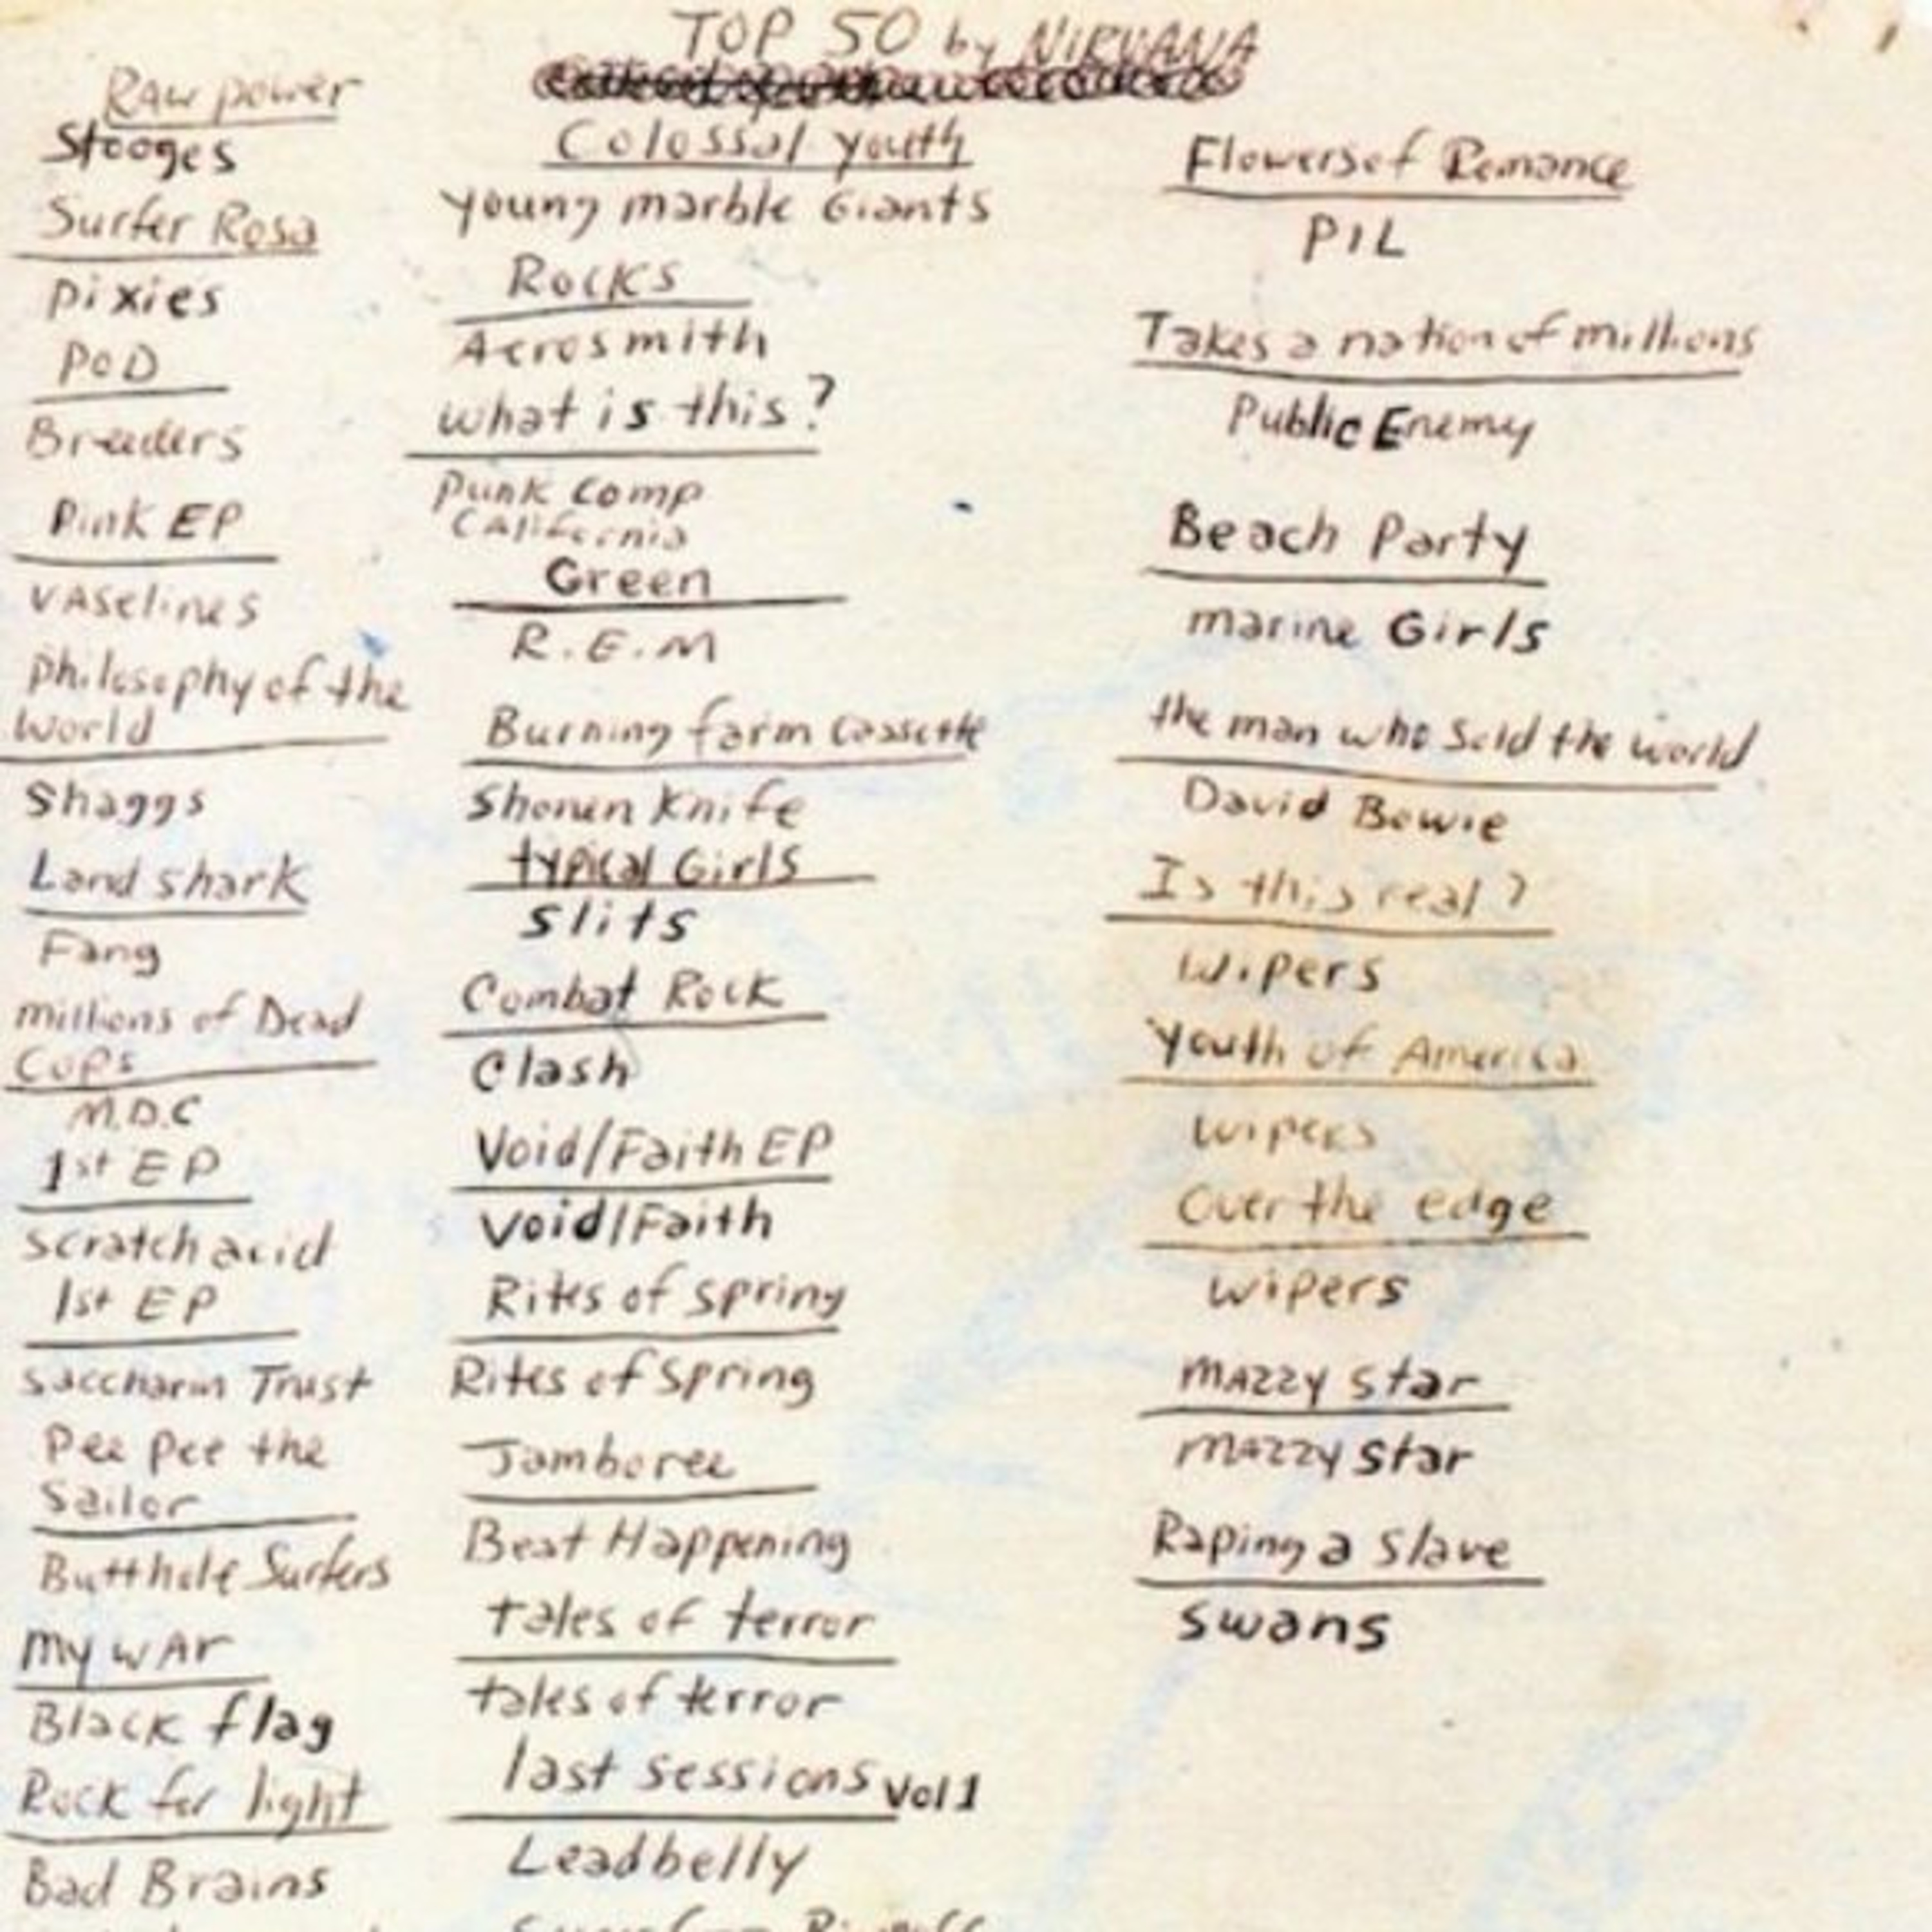 TOP 50 by NIRVANA
Raw power
Stooges
Surfer Rosa
Pixies
PoD
Breeders
Pink EP
VAselines
philosophy of the
World
Shaggs
Land shark
Fang
millions of Dead
Cops
M.D.C
1st EP
Scratch acid
1st EP
Saccharin Trust
Pee Pee the
Sailor
Butthole Surfers
My wAr
Black flag
Rock for light
Bad Brains
Colossal youth
young marble Giants
Rocks
Aerosmith
what is this?
Punk Comp
California
Green
R.E.M
Burning farm Cassette
Shonen Knife
typical Girls
Slits
Combat Rock
Clash
Void/Faith EP
Void/Faith
Rites of spring
Rites of Spring
Jamboree
Beat Happening
tales of terror
tales of terror
last sessions Vol 1
Leadbelly
Flowers of Romance
PIL
Takes a nation of millions
Public Enemy
Beach Party
marine Girls
the man who Sold the world
David Bowie
Is this real?
Wipers
Youth of America
Wipers
Over the edge
Wipers
MAzzy star
MAzzy star
Raping a Slave
Swans